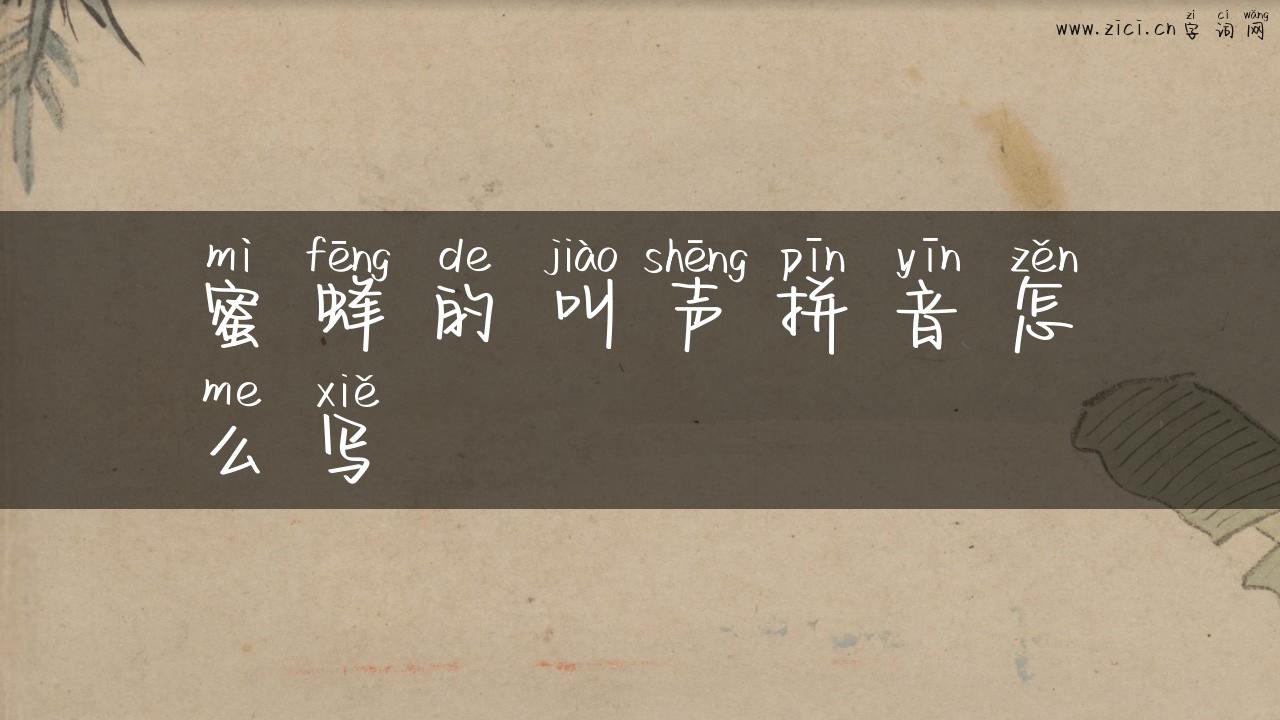 zì cí wǎng
www.zici.cn 字词网
mì fēng de jiào shēng pīn yīn zěn
蜜蜂的叫声拼音怎
me xiě
么写